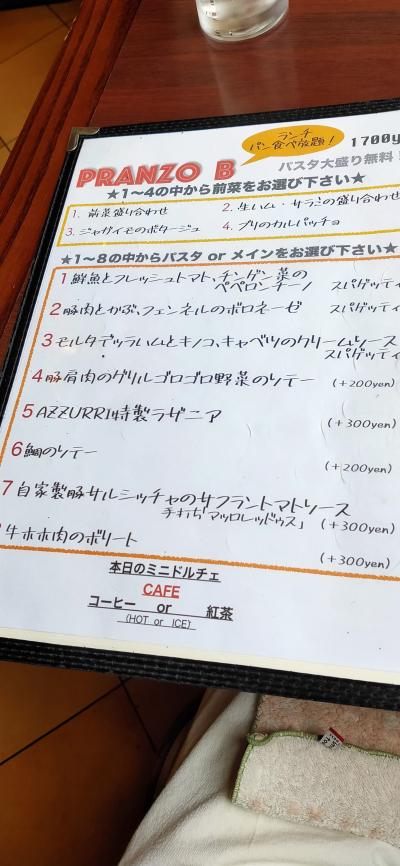 ランチ
パン食べ放題!
1700y
PRANZO B
パスタ大盛り無料!
★1〜4の中から前菜をお選び下さい★
1. 前菜盛り合わせ
2. 生ハム・サラミの盛り合わせ
3. ジャガイモのポタージュ
4. ブリのカルパッチョ
★1〜8の中からパスタ or メインをお選び下さい★
1 鮮魚とフレッシュトマト、チンゲン菜の
ペペロンチーノ スパゲッティ
2 豚肉とかぶ、フェンネルのボロネーゼ スパゲッティ
3 モルタデッラハムとキノコ、キャベツのクリームソース
スパゲッティ
4 豚肩肉のグリルゴロゴロ野菜のソテー (+200yen)
5 AZZURRI特製ラザニア (+300yen)
6 鯛のソテー (+200yen)
7 自家製豚サルシッチャのサフラントマトソース
手打ち「マッロレッドゥス」 (+300yen)
牛ホホ肉のボリート (+300yen)
本日のミニドルチェ
CAFE
コーヒー or 紅茶
(HOT or ICE)